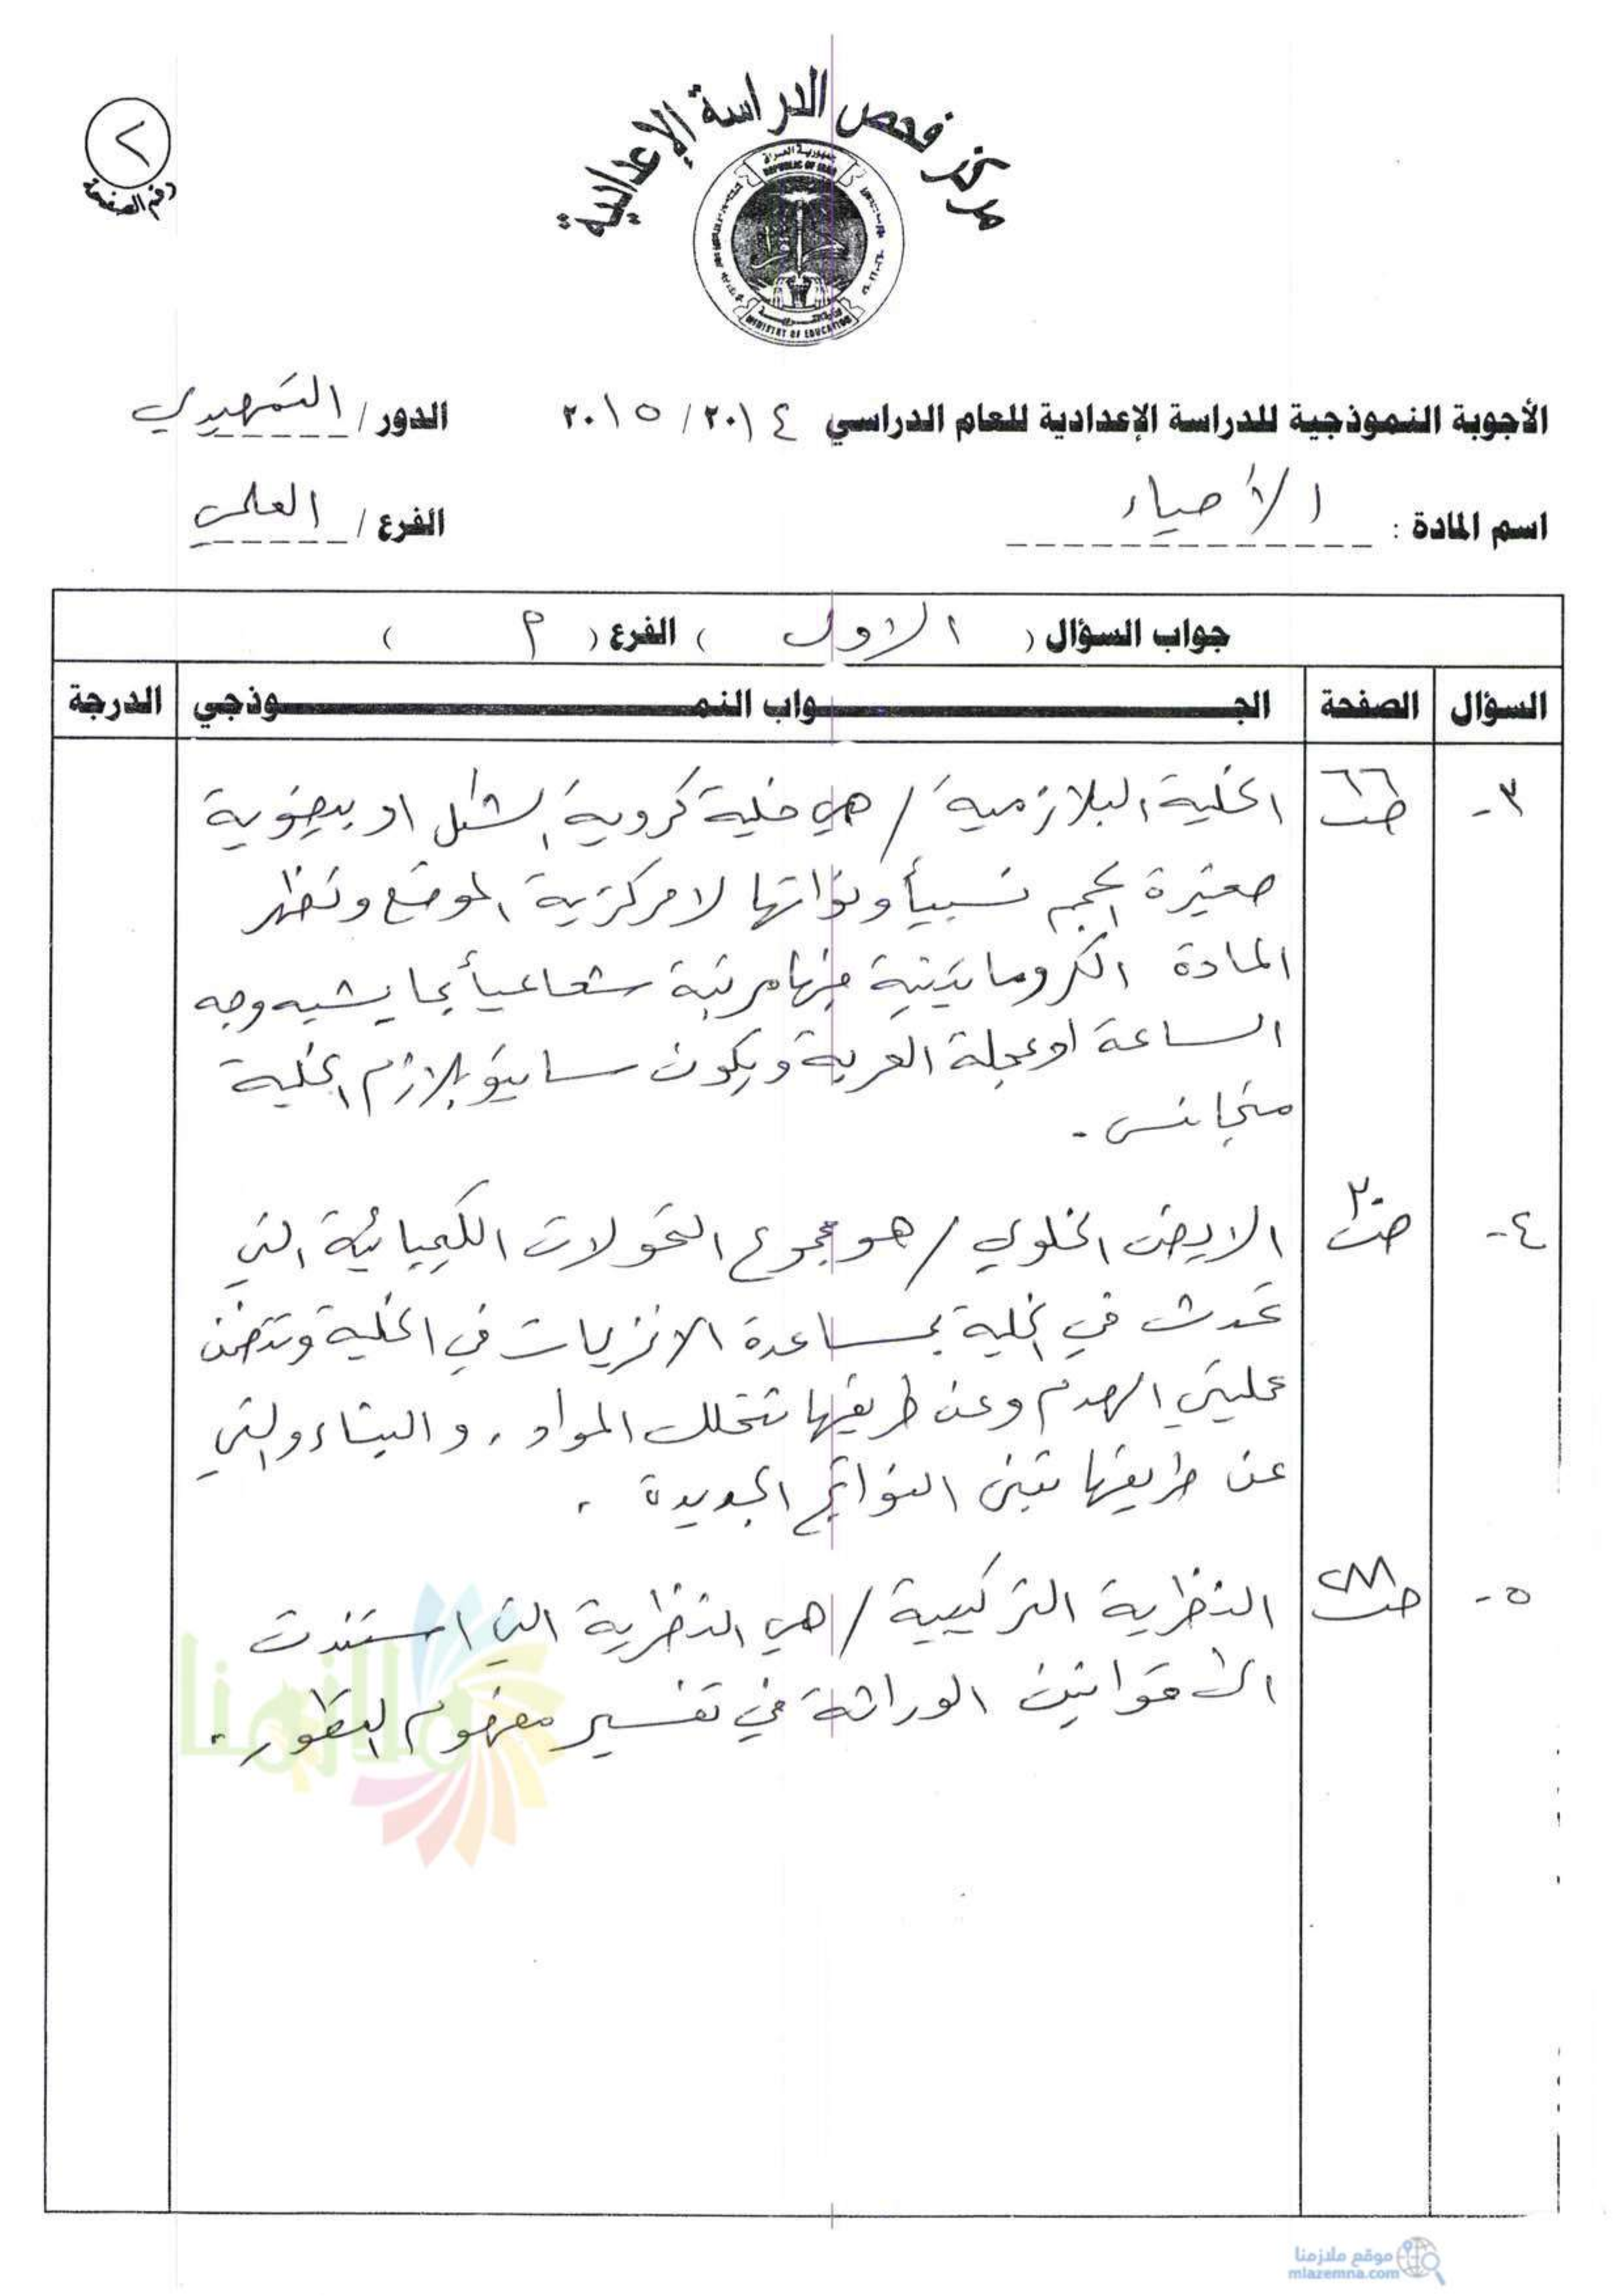 مركز فحص الدراسة الإعدادية
جمهورية العراق
REPUBLIC OF IRAQ
MINISTRY OF EDUCATION
٢
رقم الصفحة
الأجوبة النموذجية للدراسة الإعدادية للعام الدراسي ٢٠١٤ / ٢٠١٥ الدور / التمهيدي
اسم المادة : الأحياء الفرع / العلمي
جواب السؤال ( الاول ) الفرع ( م )
السؤال الصفحة الجـــواب النمـــوذجي الدرجة
٣- ص٦٦ الخلية البلازمية / هي خلية كروية الشكل او بيضوية
صغيرة الحجم نسبياً ونواتها لا مركزية الموضع وتظهر
المادة الكروماتينية فيها مرتبة شعاعياً بما يشبه وجه
الساعة او عجلة العربة ويكون سايتوبلازم الخلية
متجانس .
٤- ص٣٠ الايض الخلوي / هو مجموع التحولات الكيميائية التي
تحدث في الخلية بمساعدة الانزيمات في الخلية وتتضمن
عمليتي الهدم وعن طريقها تتحلل المواد , والبناء والتي
عن طريقها تبنى النواتج الجديدة .
٥- ص٢٨٨ النظرية التركيبية / هي النظرية التي استندت
الى قوانين الوراثة في تفسير مفهوم التطور .
ملازمنا
موقع ملازمنا
mlazemna.com